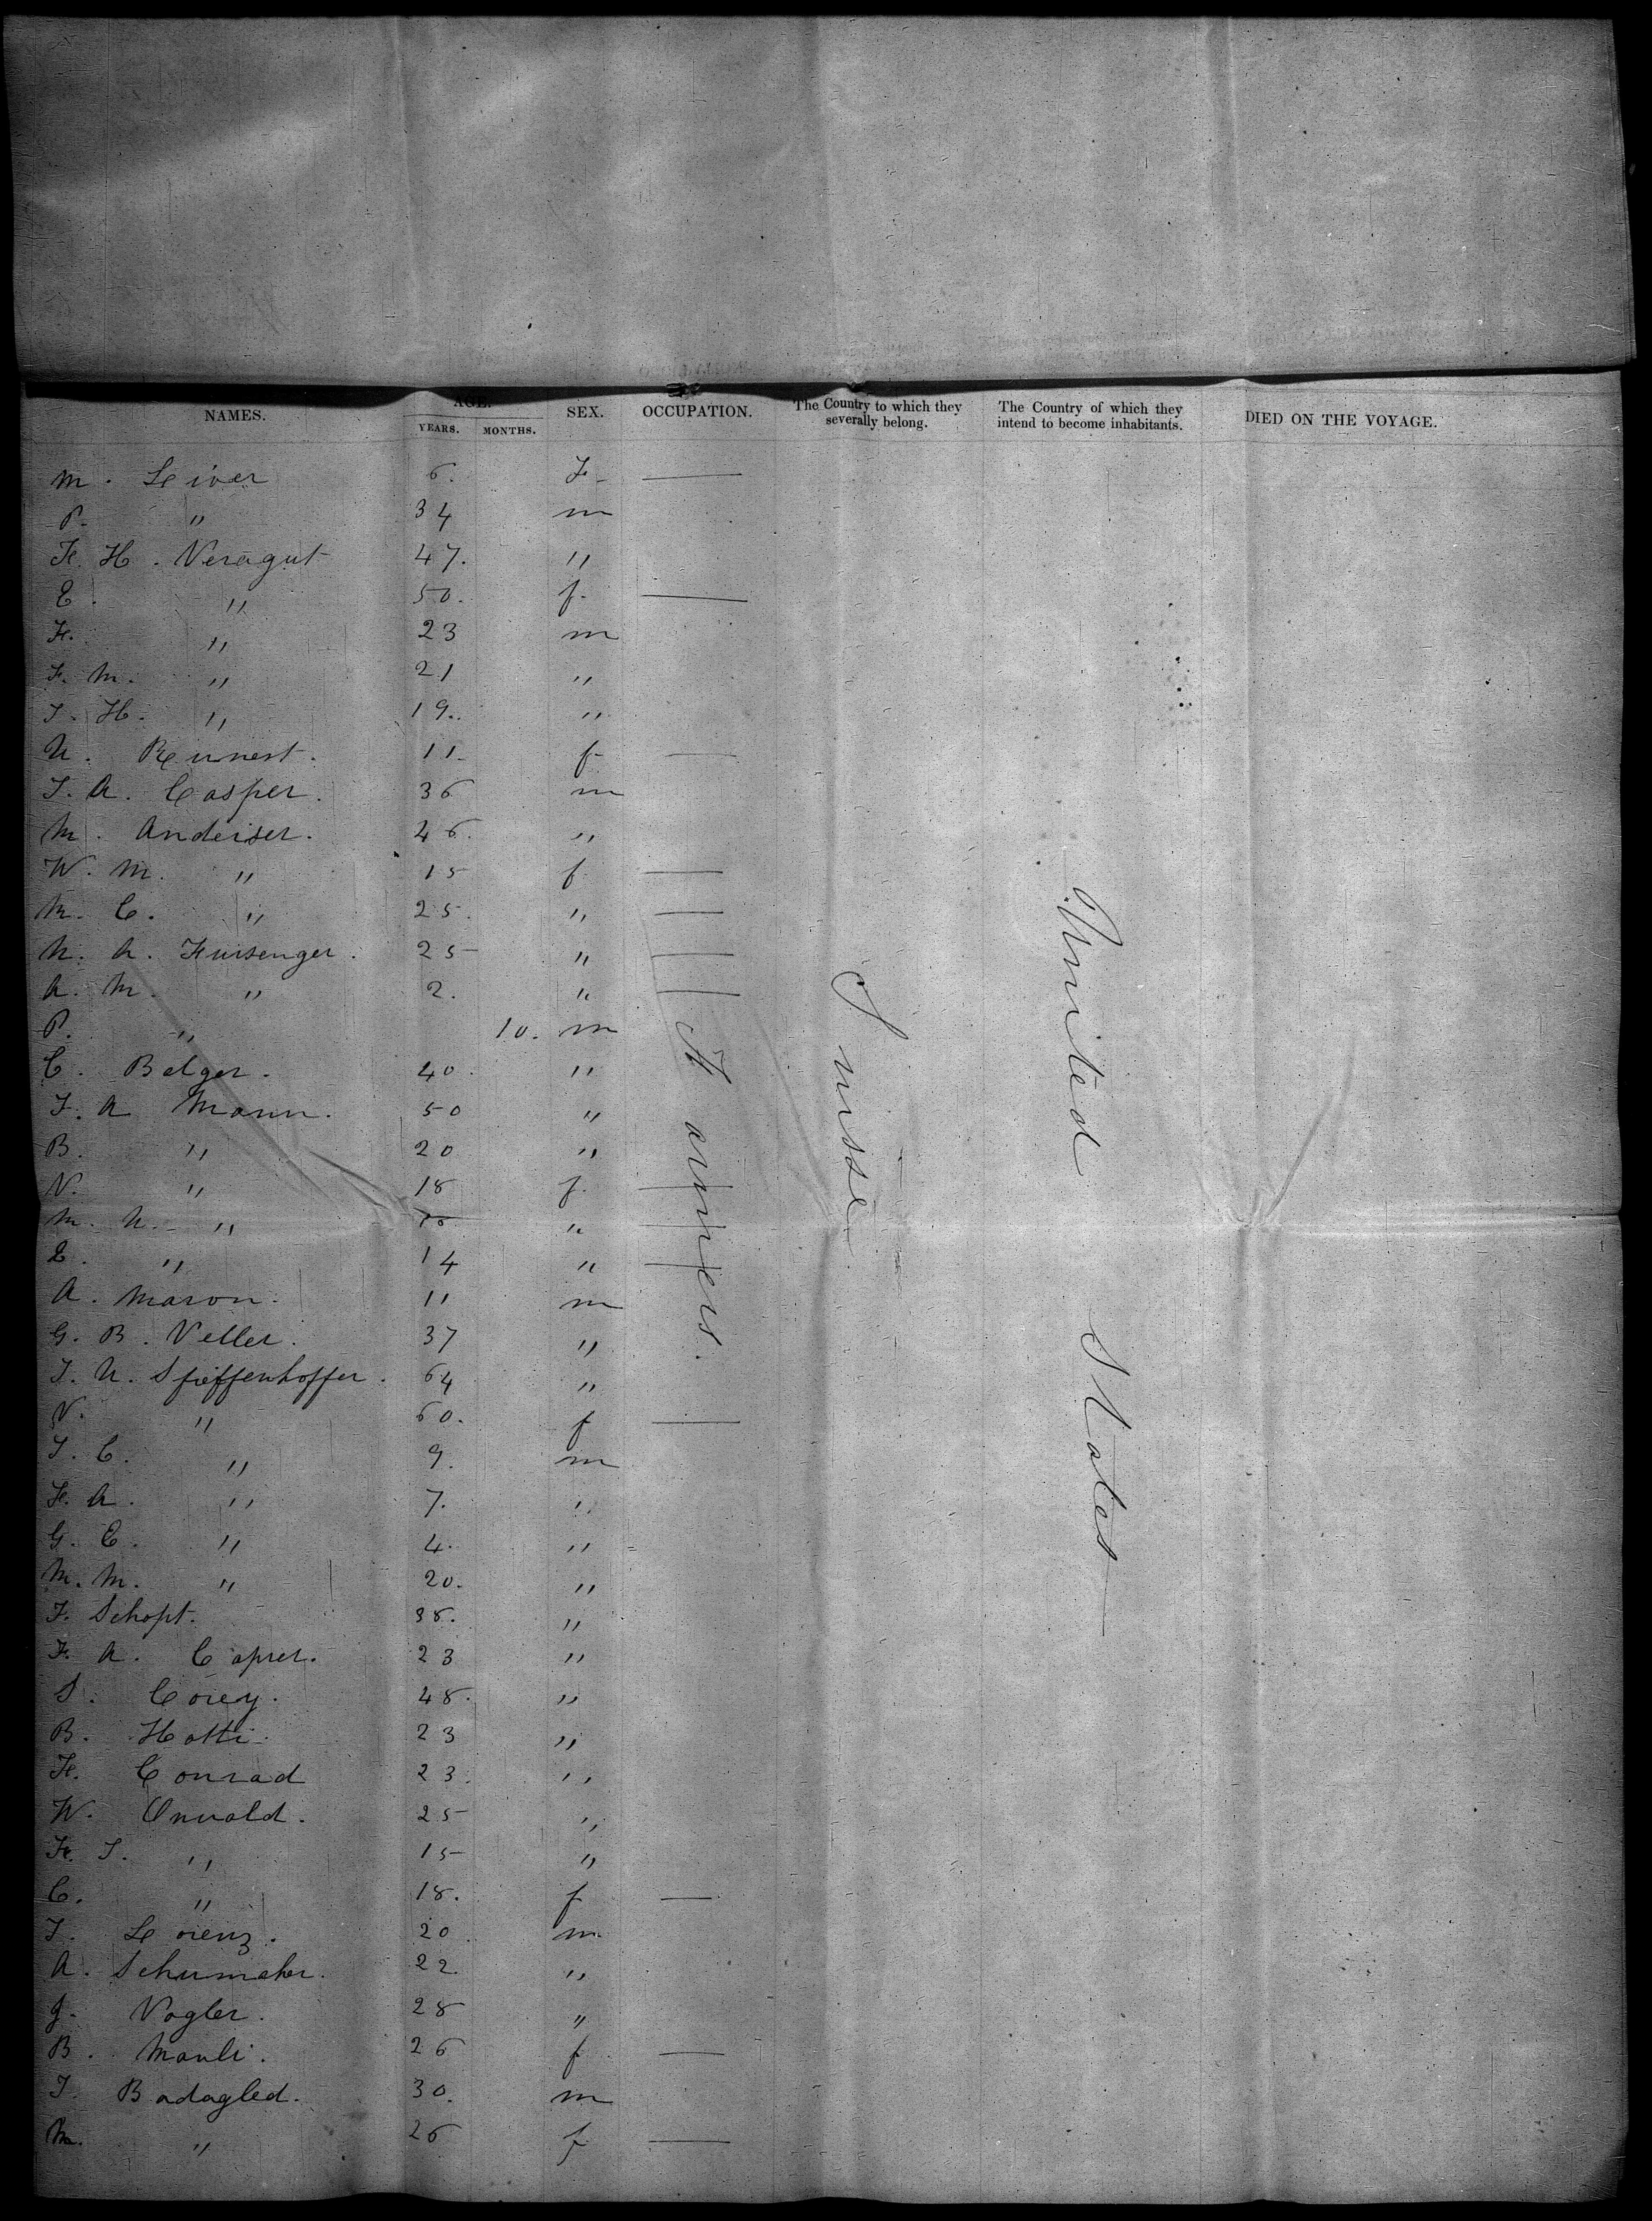 NAMES. AGE. YEARS. MONTHS. SEX. OCCUPATION. The Country to which they severally belong. The Country of which they intend to become inhabitants. DIED ON THE VOYAGE.
M. Leiver 6. F. —
P. " 34 m
H. Veragut 47. "
E. " 50. f. —
" 23 m
F. M. " 21 "
J. H. " 19. "
11. f —
J. A. Casper. 36 m
M. Anderser. 46. "
W. M. " 15 f —
M. C. " 25. " —
25 " —
A. M. " 2. " —
P. " 10. m
C. Belger. 40. "
J. A Mann. 50 "
B. " 20 "
N. " 18 f. —
" " —
" 14 " —
A. Mason. 11 m
G. B. Veller. 37 "
64 "
N. " 60. f —
J. C. " 9. m
A. " 7. "
G. C. " 4. "
M. M. " 20. "
F. Schopt. 38. "
F. A. 23 "
S. Corey. 48. "
B. Hotti. 23 "
Conrad 23. "
W. 25 "
" 15 "
C. " 18. f —
J. Lorenz. 20. m.
A. Schumaher. 22. "
J. Vogler. 28 "
B. Manli. 26 f —
J. Badagled. 30. m
M. " 26 f —
Farmers.
Suisse
United States